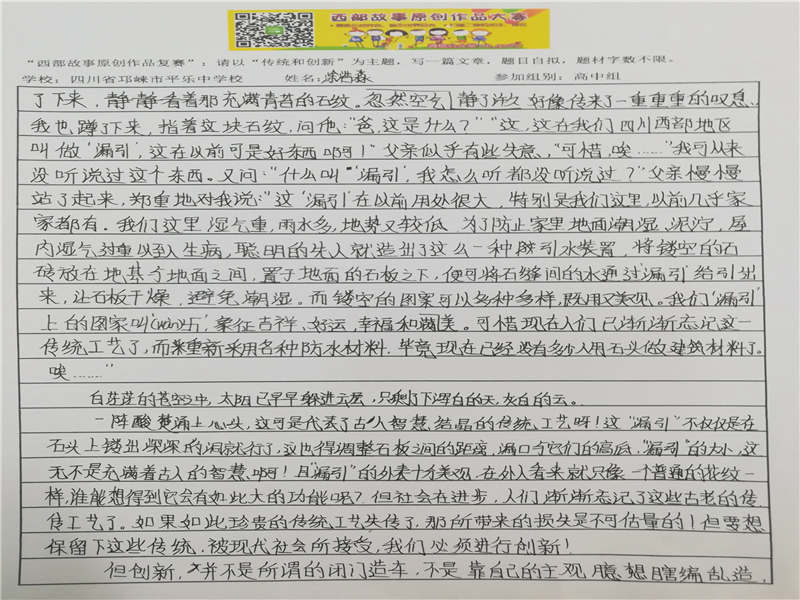 西部故事原创作品大赛
“西部故事原创作品复赛”：请以“传统和创新”为主题，写一篇文章，题目自拟，题材字数不限。
学校：四川省邛崃市平乐中学校 姓名： 参加组别：高中组
了下来，静静看着那充满青苔的石纹。忽然空气静了许久 好像传来了一重重重的叹息。
我也蹲了下来，指着这块石纹，问他：“爸，这是什么？”“这，这在我们四川西部地区
叫做‘漏引’，这在以前可是好东西啊！”父亲似乎有些失意，“可惜，唉……”我可从来
没听说过这个东西。又问：“什么叫“‘漏引’，我怎么听都没听说过？”父亲慢慢
站了起来，郑重地对我说：“这‘漏引’在以前用处很大，特别是我们这里，以前几乎家
家都有。我们这里，湿气重，雨水多，地势又较低，为了防止家里地面潮湿、泥泞，屋
内湿气过重以致人生病，聪明的先人就造出了这么一种引水装置，将镂空的石
砖放在地基与地面之间，置于地面的石板之下，便可将石缝间的水通过‘漏引’给引出
来，让石板干燥，避免潮湿。而镂空的图案可以多种多样，既用又美观。我们‘漏引’
上的图案叫(wàn)卐，象征吉祥、好运、幸福和满美。可惜现在人们已渐渐忘记这一
传统工艺了，而来重新采用各种防水材料，毕竟现在已经没有多少人用石头做建筑材料了。
唉……”
白茫茫的苍空中，太阳已早早躲进云层，只剩下了浮白的天，灰白的云。
一阵酸楚涌上心头，这可是代表了古人智慧结晶的传统工艺呀！这“漏引”不仅仅是在
石头上镂出深深的洞就行了，这也得调整石板之间的距离，漏口与它们的高低，“漏引”的大小，这
无不是充满着古人的智慧啊！且“漏引”的外表十分美观，在外人看来就只像一个普通的花纹一
样，谁能想得到它会有如此大的功能呢？但社会在进步，人们渐渐忘记了这些古老的传
传工艺了。如果如此珍贵的传统工艺失传了，那所带来的损失是不可估量的！但要想
保留下这些传统，被现代社会所接受，我们必须进行创新！
但创新，并不是所谓的闭门造车，不是靠自己的主观臆想瞎编乱造，